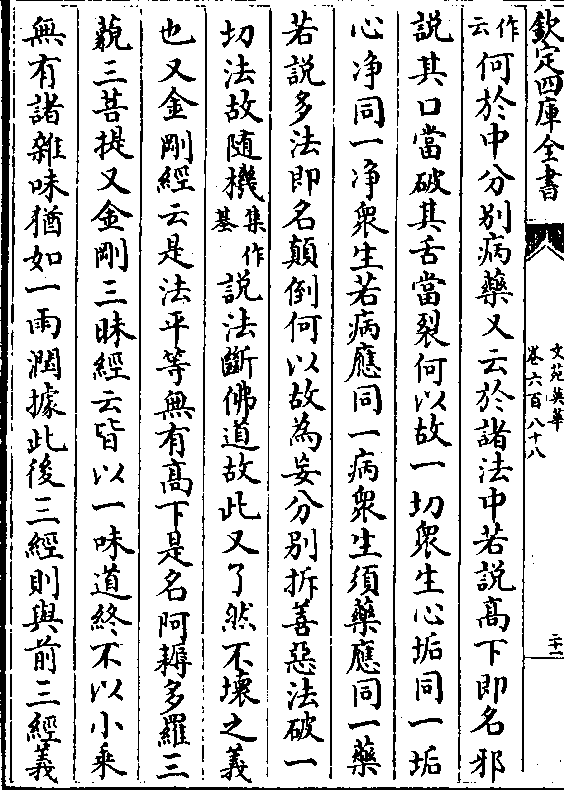 欽定四庫全書
文苑英華
卷六百八十八
二十一
作云何於中分别病藥又云於諸法中若説髙下即名邪
説其口當破其舌當裂何以故一切衆生心垢同一垢
心净同一净衆生若病應同一病衆生須藥應同一藥
若説多法即名顛倒何以故為妄分别拆善惡法破一
切法故随機集作基説法斷佛道故此又了然不壞之義
也又金剛經云是法平等無有髙下是名阿耨多羅三
藐三菩提又金剛三昧經云皆以一味道終不以小乗
無有諸雜味猶如一雨潤據此後三經則與前三經義